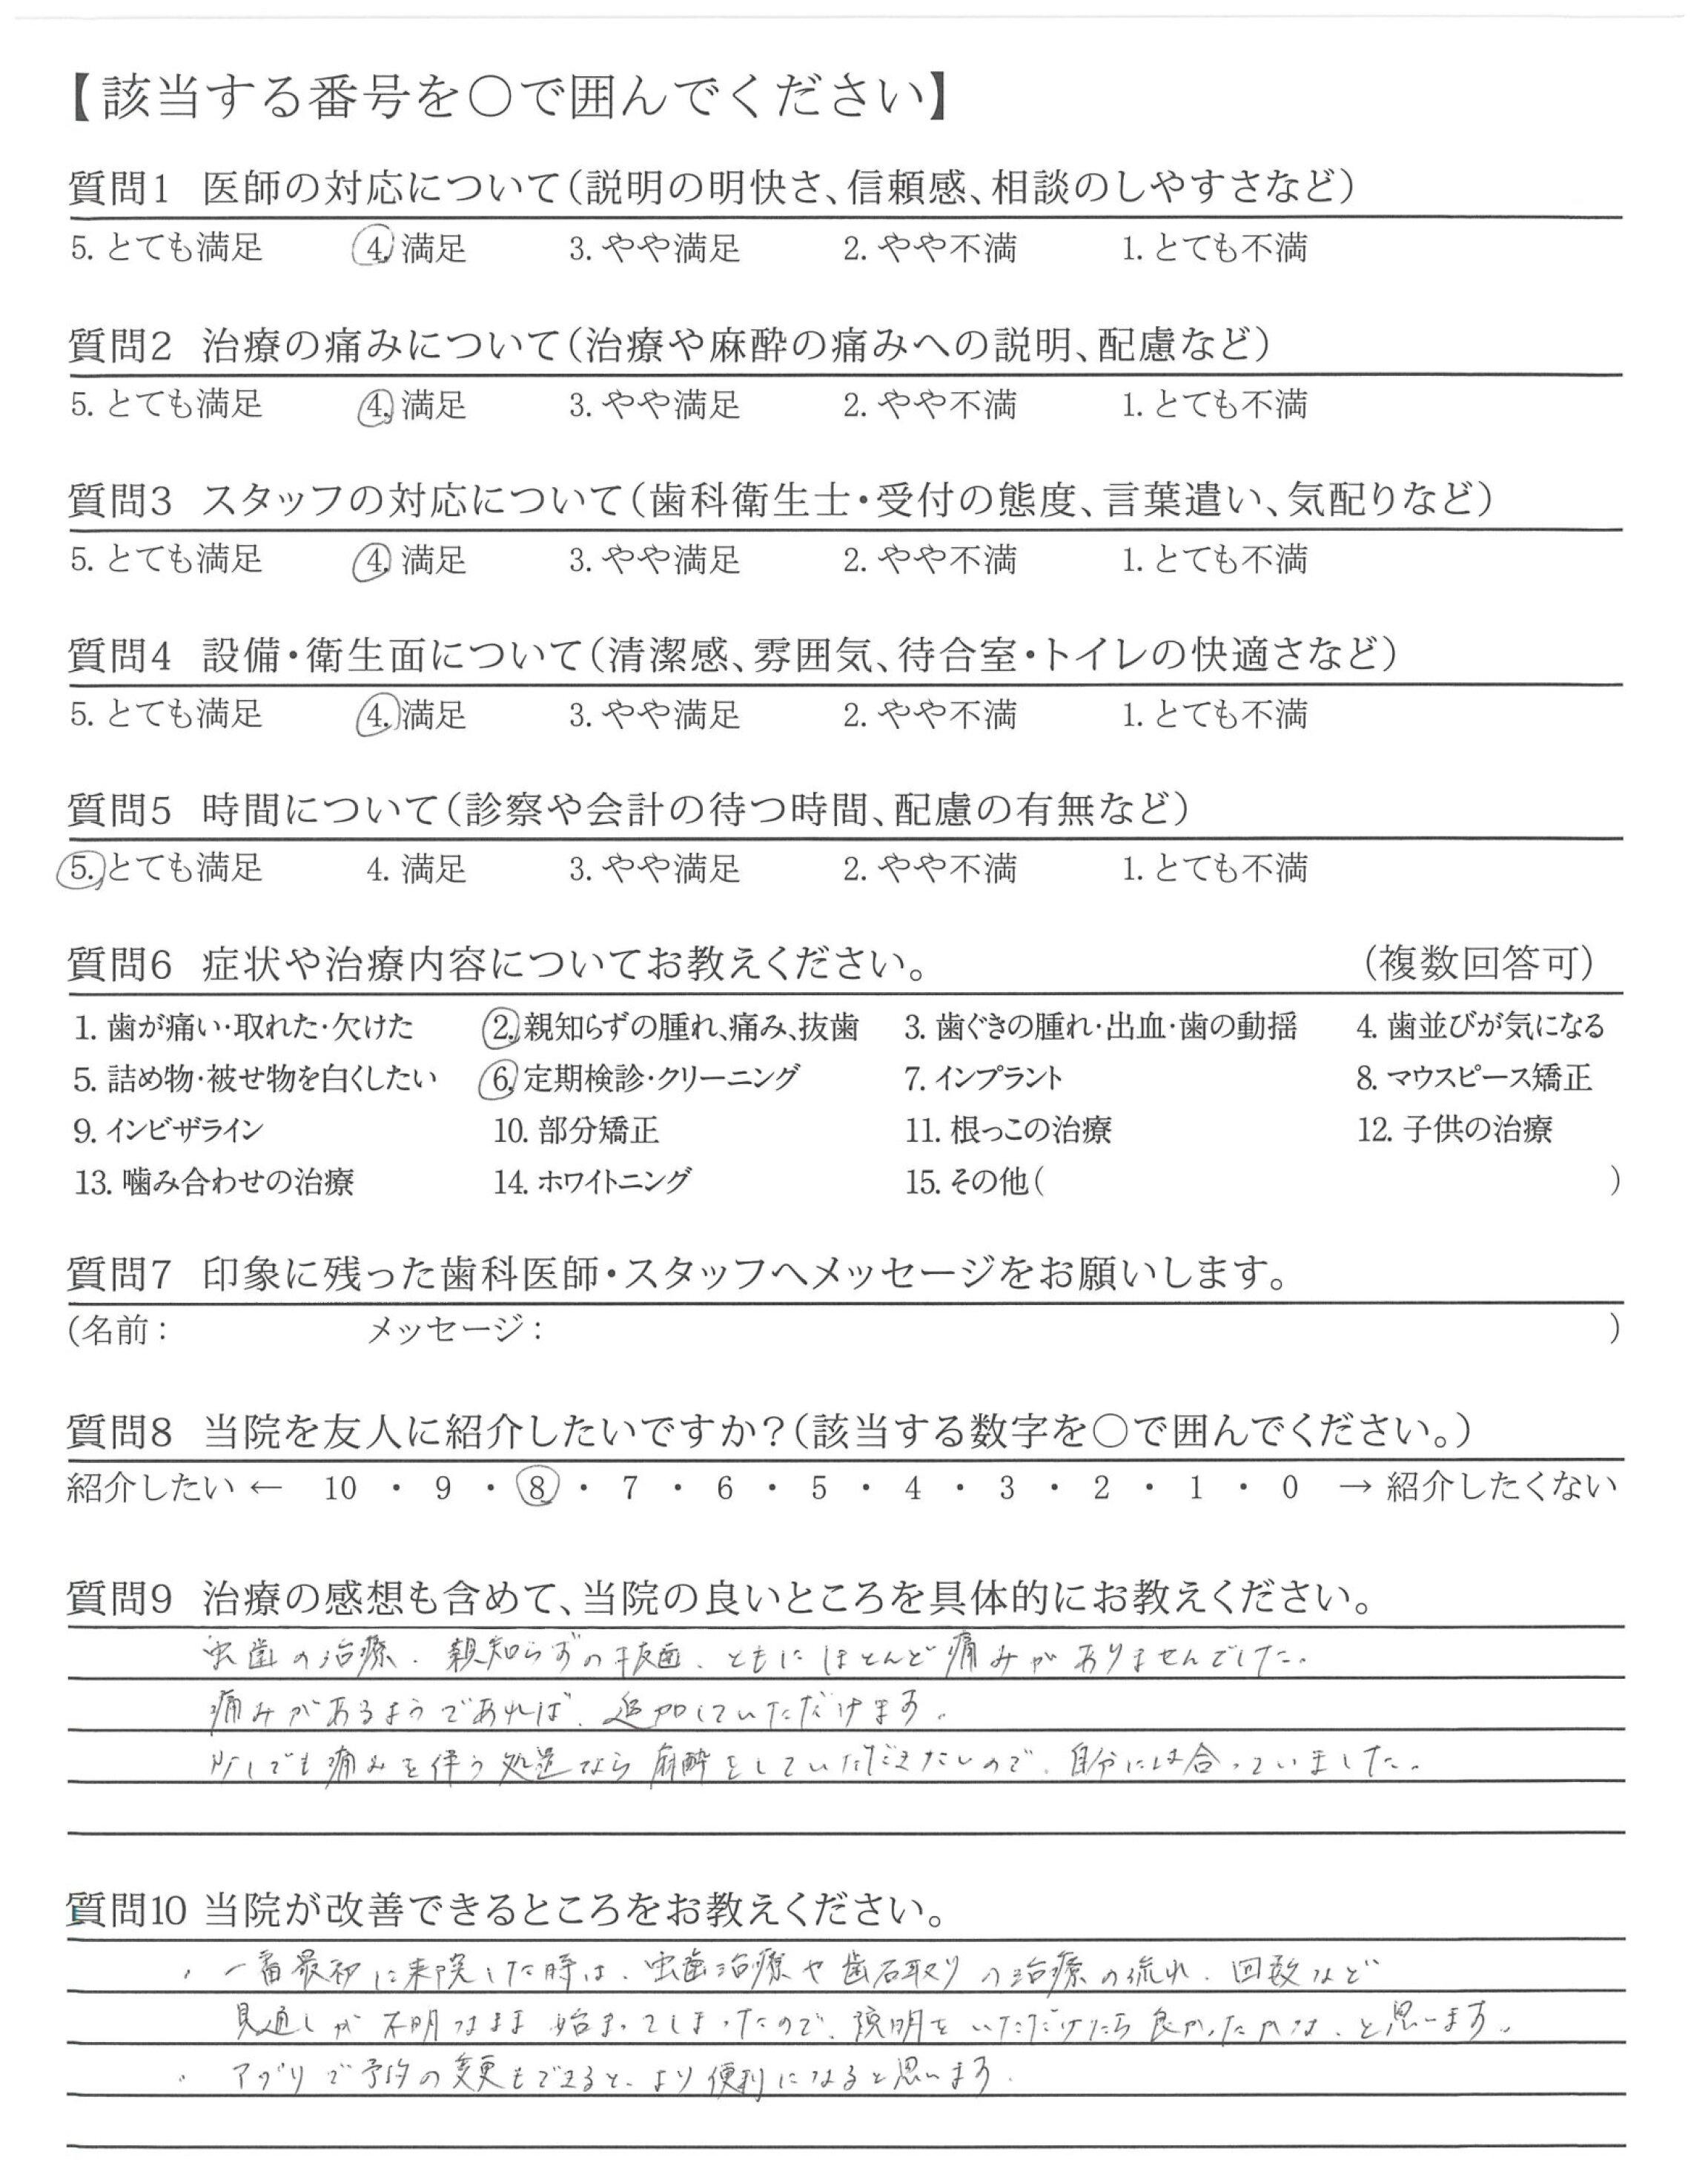 【該当する番号を○で囲んでください】
質問1 医師の対応について(説明の明快さ、信頼感、相談のしやすさなど)
5. とても満足 4. 満足 3. やや満足 2. やや不満 1. とても不満
質問2 治療の痛みについて(治療や麻酔の痛みへの説明、配慮など)
5. とても満足 4. 満足 3. やや満足 2. やや不満 1. とても不満
質問3 スタッフの対応について(歯科衛生士・受付の態度、言葉遣い、気配りなど)
5. とても満足 4. 満足 3. やや満足 2. やや不満 1. とても不満
質問4 設備・衛生面について(清潔感、雰囲気、待合室・トイレの快適さなど)
5. とても満足 4. 満足 3. やや満足 2. やや不満 1. とても不満
質問5 時間について(診察や会計の待つ時間、配慮の有無など)
5. とても満足 4. 満足 3. やや満足 2. やや不満 1. とても不満
質問6 症状や治療内容についてお教えください。 (複数回答可)
1. 歯が痛い・取れた・欠けた 2. 親知らずの腫れ、痛み、抜歯 3. 歯ぐきの腫れ・出血・歯の動揺 4. 歯並びが気になる
5. 詰め物・被せ物を白くしたい 6. 定期検診・クリーニング 7. インプラント 8. マウスピース矯正
9. インビザライン 10. 部分矯正 11. 根っこの治療 12. 子供の治療
13. 噛み合わせの治療 14. ホワイトニング 15. その他( )
質問7 印象に残った歯科医師・スタッフへメッセージをお願いします。
(名前: メッセージ: )
質問8 当院を友人に紹介したいですか?(該当する数字を○で囲んでください。)
紹介したい ← 10 ・ 9 ・ 8 ・ 7 ・ 6 ・ 5 ・ 4 ・ 3 ・ 2 ・ 1 ・ 0 → 紹介したくない
質問9 治療の感想も含めて、当院の良いところを具体的にお教えください。
虫歯の治療、親知らずの抜歯、ともにほとんど痛みがありませんでした。
痛みがあるようであれば、追加していただけます。
少しでも痛みを伴う処置なら麻酔をしていただきたいので、自分には合っていました。
質問10 当院が改善できるところをお教えください。
・一番最初に来院した時は、虫歯治療や歯石取りの治療の流れ、回数など
見通しが不明なまま始まってしまったので、説明をいただけたら良かったかな、と思います。
・アプリで予約の変更もできると、より便利になると思います。